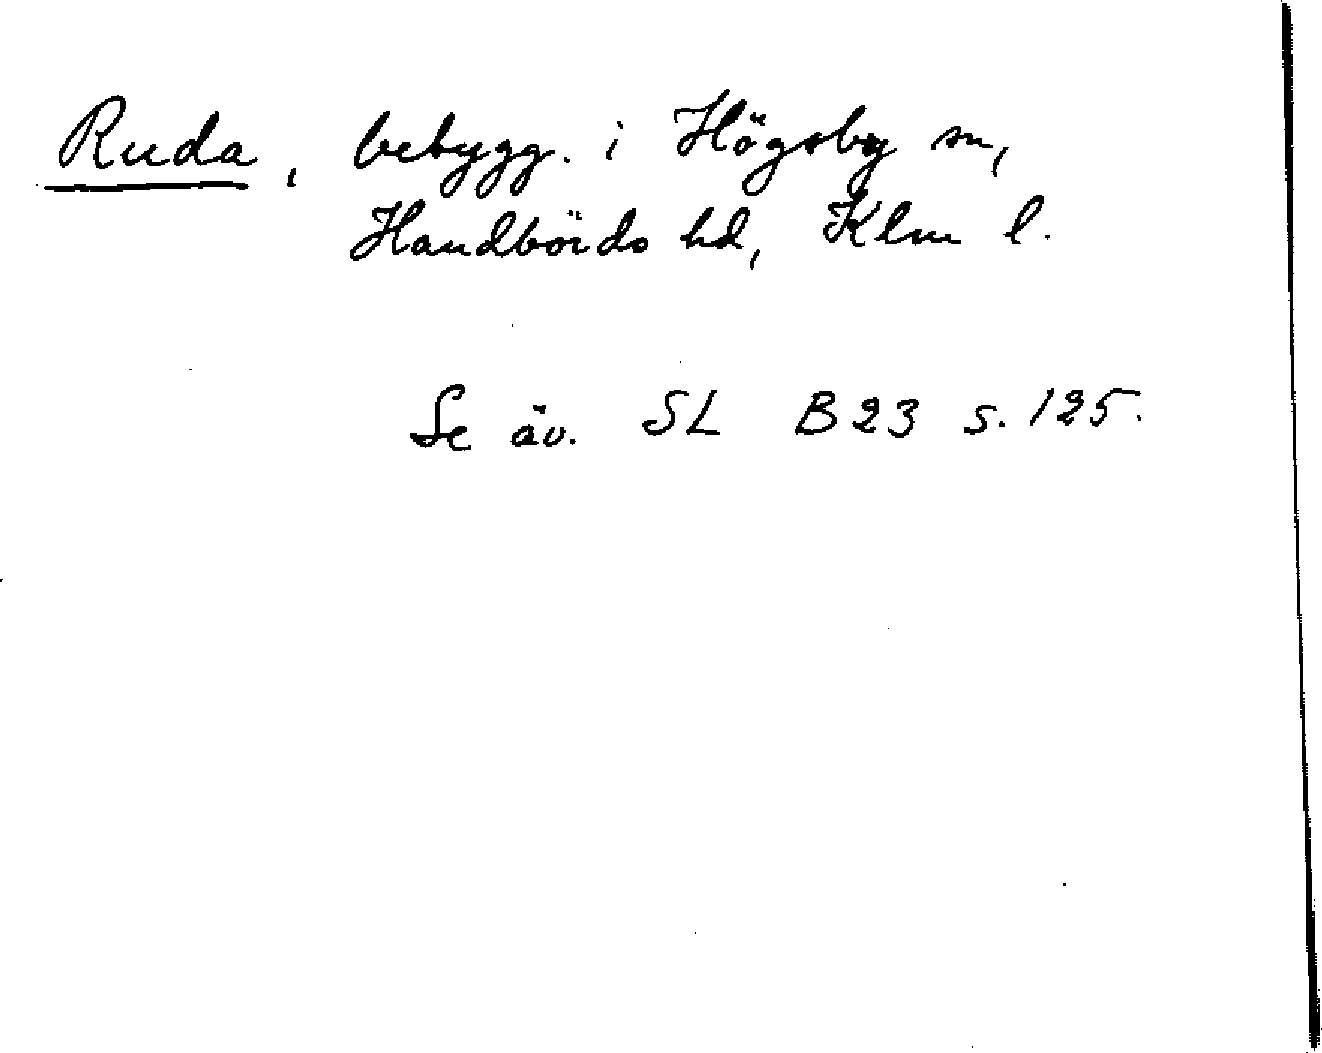 Ruda, bebygg. i Högsby sn,
Handbörds hd, Klm l.
Se äv. SL B23 s. 125.